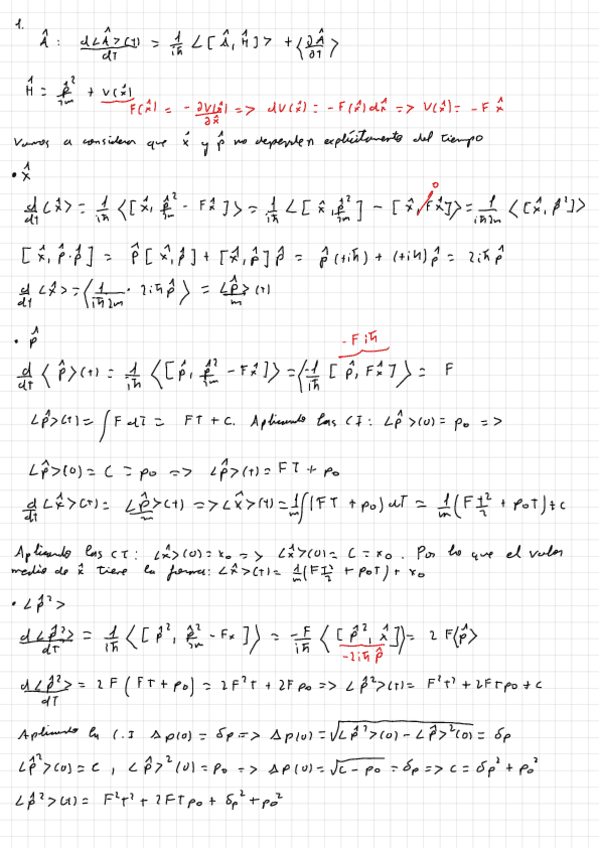 1.
Â : d<Â>(t)/dt = 1/iħ <[Â, Ĥ]> + <∂Â/∂t>
Ĥ = p̂²/2m + V(x̂)
F(x̂) = - ∂V(x̂)/∂x̂ => dV(x̂) = - F(x̂)dx̂ => V(x̂) = - F x̂
Vamos a considerar que x̂ y p̂ no dependen explícitamente del tiempo
• x̂
d/dt <x̂> = 1/iħ <[x̂, p̂²/2m - Fx̂]> = 1/iħ <[x̂, p̂²/2m] - [x̂, Fx̂]> = 1/iħ2m <[x̂, p̂²]>
0
[x̂, p̂·p̂] = p̂[x̂, p̂] + [x̂, p̂]p̂ = p̂(+iħ) + (+iħ)p̂ = 2iħp̂
d/dt <x̂> = <1/iħ2m · 2iħp̂> = <p̂>(t)/m
• p̂
- F iħ
d/dt <p̂>(t) = 1/iħ <[p̂, p̂²/2m - Fx̂]> = <-1/iħ [p̂, Fx̂]> = F
<p̂>(t) = ∫ F dt = Ft + C. Aplicando las CI: <p̂>(0) = p₀ =>
<p̂>(0) = C = p₀ => <p̂>(t) = Ft + p₀
d/dt <x̂>(t) = <p̂>(t)/m => <x̂>(t) = 1/m ∫(Ft + p₀)dt = 1/m (F t²/2 + p₀t) + c
Aplicando las CI: <x̂>(0) = x₀ => <x̂>(0) = C = x₀. Por lo que el valor
medio de x̂ tiene la forma: <x̂>(t) = 1/m (F t²/2 + p₀t) + x₀
• <p̂²>
d<p̂²>/dt = 1/iħ <[p̂², p̂²/2m - Fx]> = -F/iħ <[p̂², x̂]> = 2F<p̂>
-2iħp̂
d<p̂²>/dt = 2F(Ft + p₀) = 2F²t + 2Fp₀ => <p̂²>(t) = F²t² + 2Ftp₀ + c
Aplicando la C.I Δp(0) = δp => Δp(0) = √<p̂²>(0) - <p̂>²(0) = δp
<p̂²>(0) = c, <p̂>²(0) = p₀ => Δp(0) = √c - p₀ = δp => c = δp² + p₀²
<p̂²>(t) = F²t² + 2Ftp₀ + δp² + p₀²